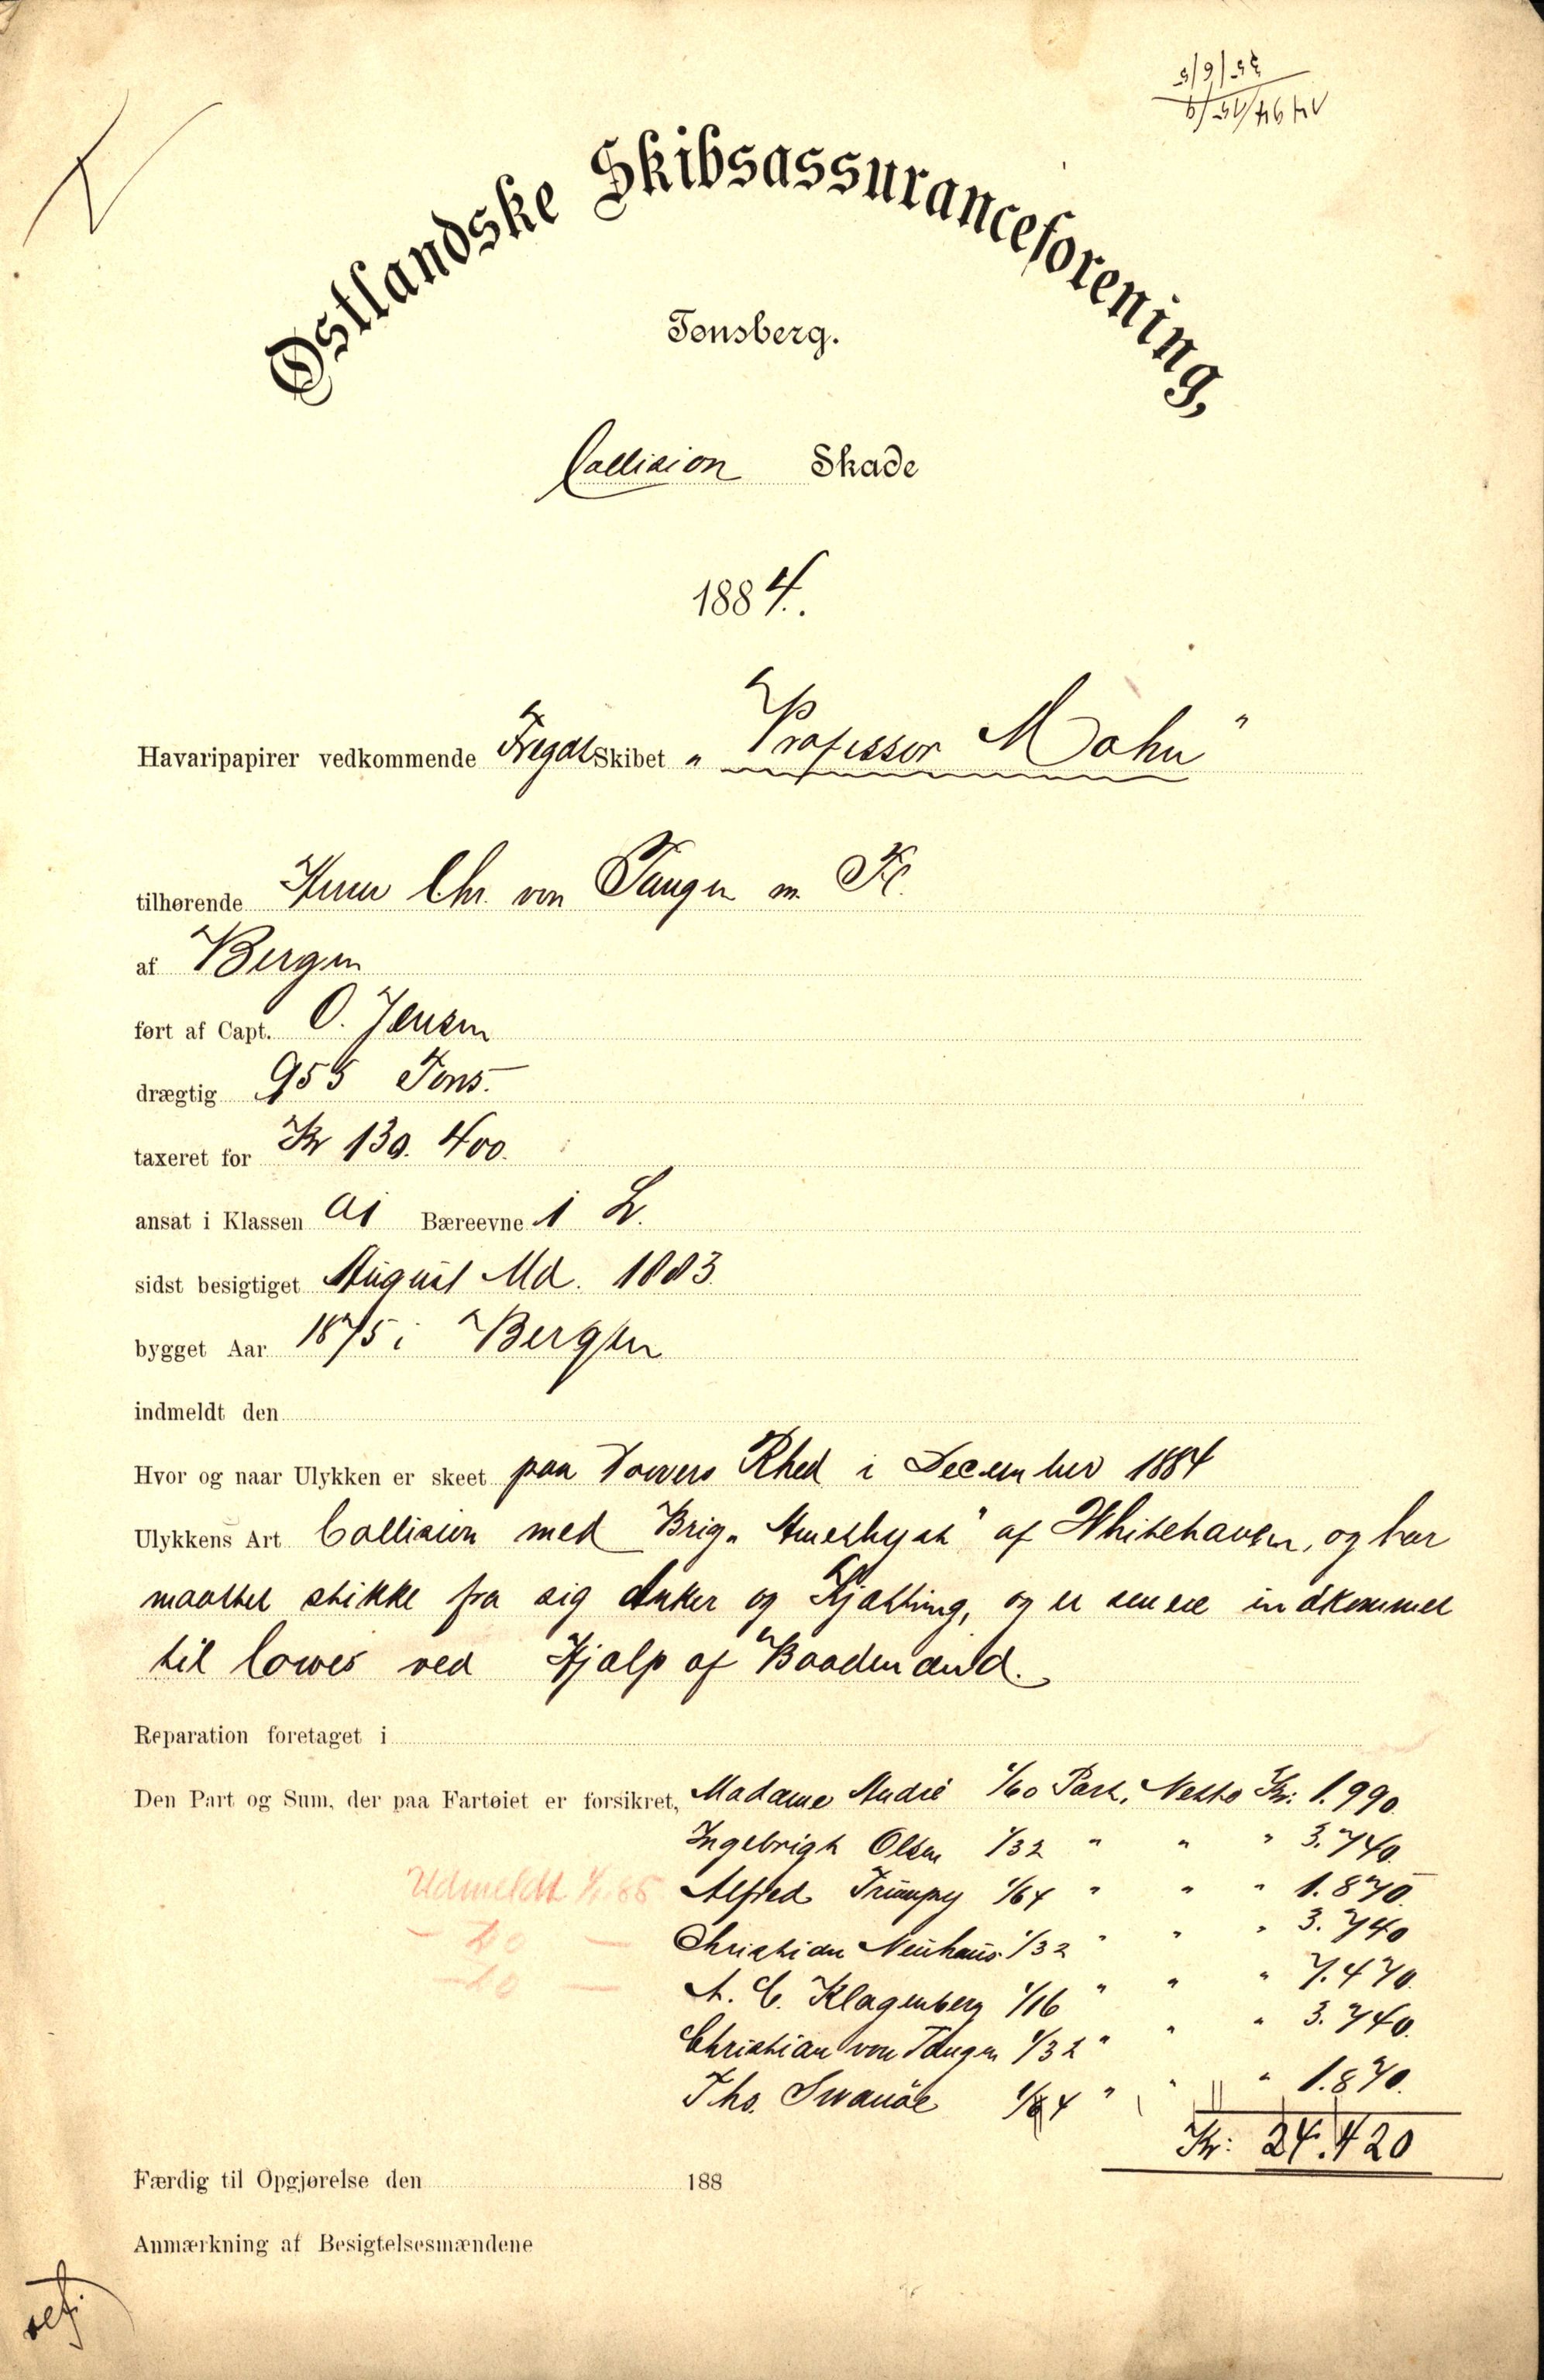 Østlandske Skibsassuranceforening,
Tønsberg.
Collision Skade
1884.
Havaripapirer vedkommende Fregatskibet „Professor Mohn"
tilhørende Herrer Chr. von Tangen m. Fl.
af Bergen
ført af Capt. O. Jensen
drægtig 955 Tons.
taxeret for Kr 130.400.
ansat i Klassen A1 Bæreevne 1 L.
sidst besigtiget August Md. 1883.
bygget Aar 1875 i Bergen
indmeldt den
Hvor og naar Ulykken er skeet paa Dovers Rhed i December 1884
Ulykkens Art Collision med Brig „Amethyst" af Whitehaven, og har
maattet stikke fra sig Anker og Kjætting, og er senere indkommet
til Cowes ved Hjælp af Baadmænd.
Reparation foretaget i
Den Part og Sum, der paa Fartøiet er forsikret, Madame André 1/60 Part. Netto Kr: 1.990.
Ingebrigt Olsen 1/32 " " " 3.740.
Udmeldt 1/1 85 Alfred Trumpy 1/64 " " " 1.870.
– do – Christian Neuhaus 1/32 " " " 3.740
– do – A. C. Klagenberg 1/16 " " " 7.470.
Christian von Tangen 1/32 " " " 3.740.
Ths. Swanøe 1/64 " " " 1.870.
Kr: 24.420
Færdig til Opgjørelse den 188
Anmærkning af Besigtelsesmændene